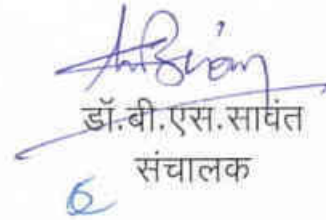 डॉ.बी.एस.साघंत
संचालक